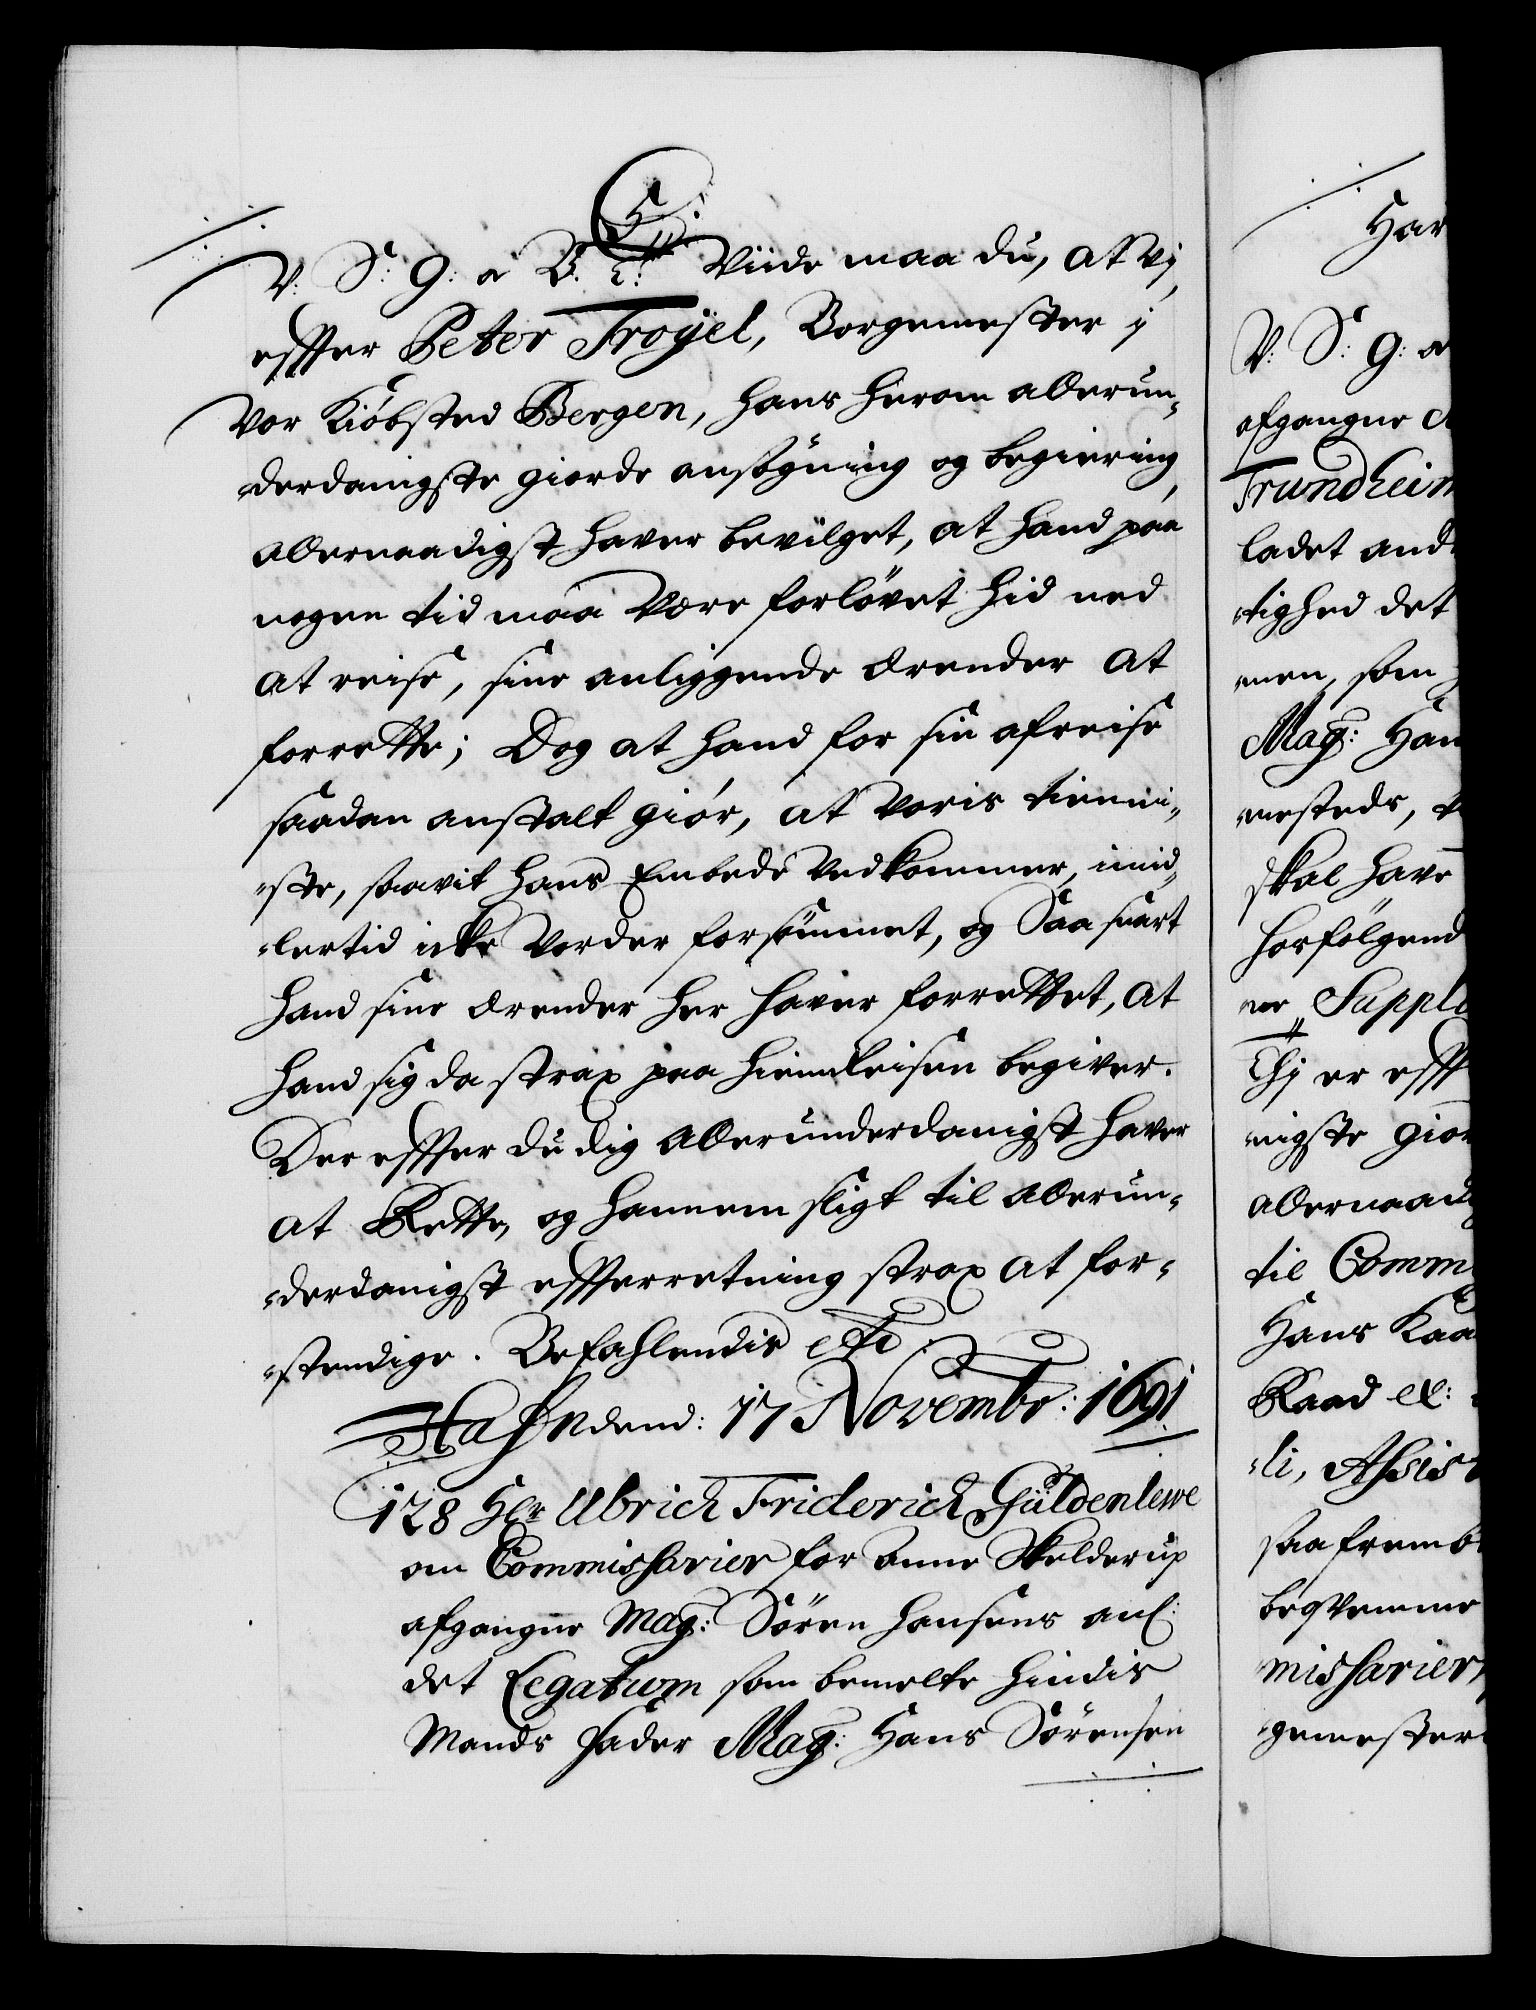 C5.
V: S: G: a B. T: Viide maa du, at Vj,
effter Peter Troÿel, Borgemester i
Vor Kiöbsted Bergen, hans herom allerun„
„derdanigste giorde ansögning og begiering
allernaadigst hafver bevilget, at hand paa
nogen tid maa være forlövet hid ned
at reise, sine anliggende ærender at
forrette; Dog at hand for sin afreise
saadan anstalt giör, at Voris tienni„
„ste, saavit hans Embede vedkommer, imid„
„lertid icke vorder forsömmet, og Saa snart
hand sine ærender her hafver forrettet, at
hand sig da strax paa hiemreisen begiver.
Der effter du dig allerunderdanigst hafver
at Rette, og hannem sligt til allerun„
„derdanigst effterretning strax at for„
„stendige. Befahlendis etc
Hafn dend: 17 Novembr: 1691
128 Hr Ulrich Friderich Güldenlewe
om Commissarier for Anne Skelderup
afgangne Mag: Sören Hansens anl:
det Legatum som bemelte hindis
Mands Fader Mag: Hans Sörensen
Har
V: S: G: a
afgangne
Trundheim
ladet and
„tighed det
„men, som
Mag: Han
„mesteds,
skal hafve
Herfölgend
„ne Suppli
Thj er efft
„nigste gior
allernaad
til Comm
Hans Kaa
Raad etc:
„li, Assist
saa fremt
beqvemme
missarier
„gemester